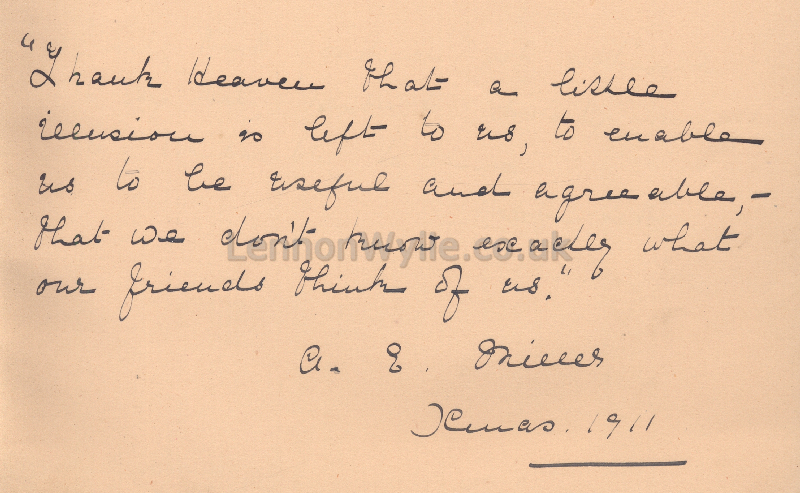 "Thank Heaven that a little
illusion is left to us, to enable
us to be useful and agreeable,-
that we don't know exactly what
LennonWylie.co.uk
our friends think of us."
A. E.
Xmas. 1911